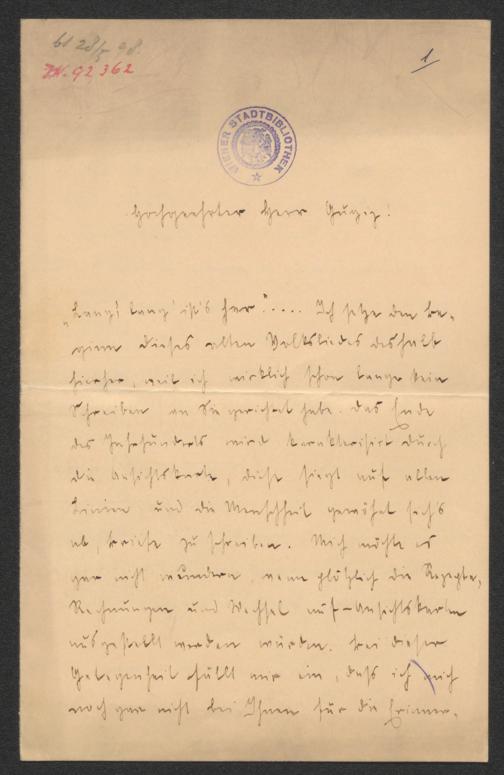 61 28/5 98.
I.N. 92362
1
WIENER STADTBIBLIOTHEK
Hochgeehrter Herr Gugiz!
„Lang' lang' ist's her"..... Ich setze den Be-
ginn dieses alten Volksliedes deshalb
hierher, weil ich wirklich schon lange kein
Schreiben an Sie gerichtet habe. Das Ende
des Jahrhunderts wird karakterisirt durch
die Ansichtskarte, diese siegt auf allen
Linien und die Menschheit gewöhnt sich's
ab, Briefe zu schreiben. Mich möchte es
gar nicht wundern, wenn plötzlich die Rezepte,
Rechnungen und Wechsel auf Ansichtskarten
ausgestellt werden würden. Bei dieser
Gelegenheit fällt mir ein, daß ich mich
noch gar nicht bei Ihnen für die Erinner-